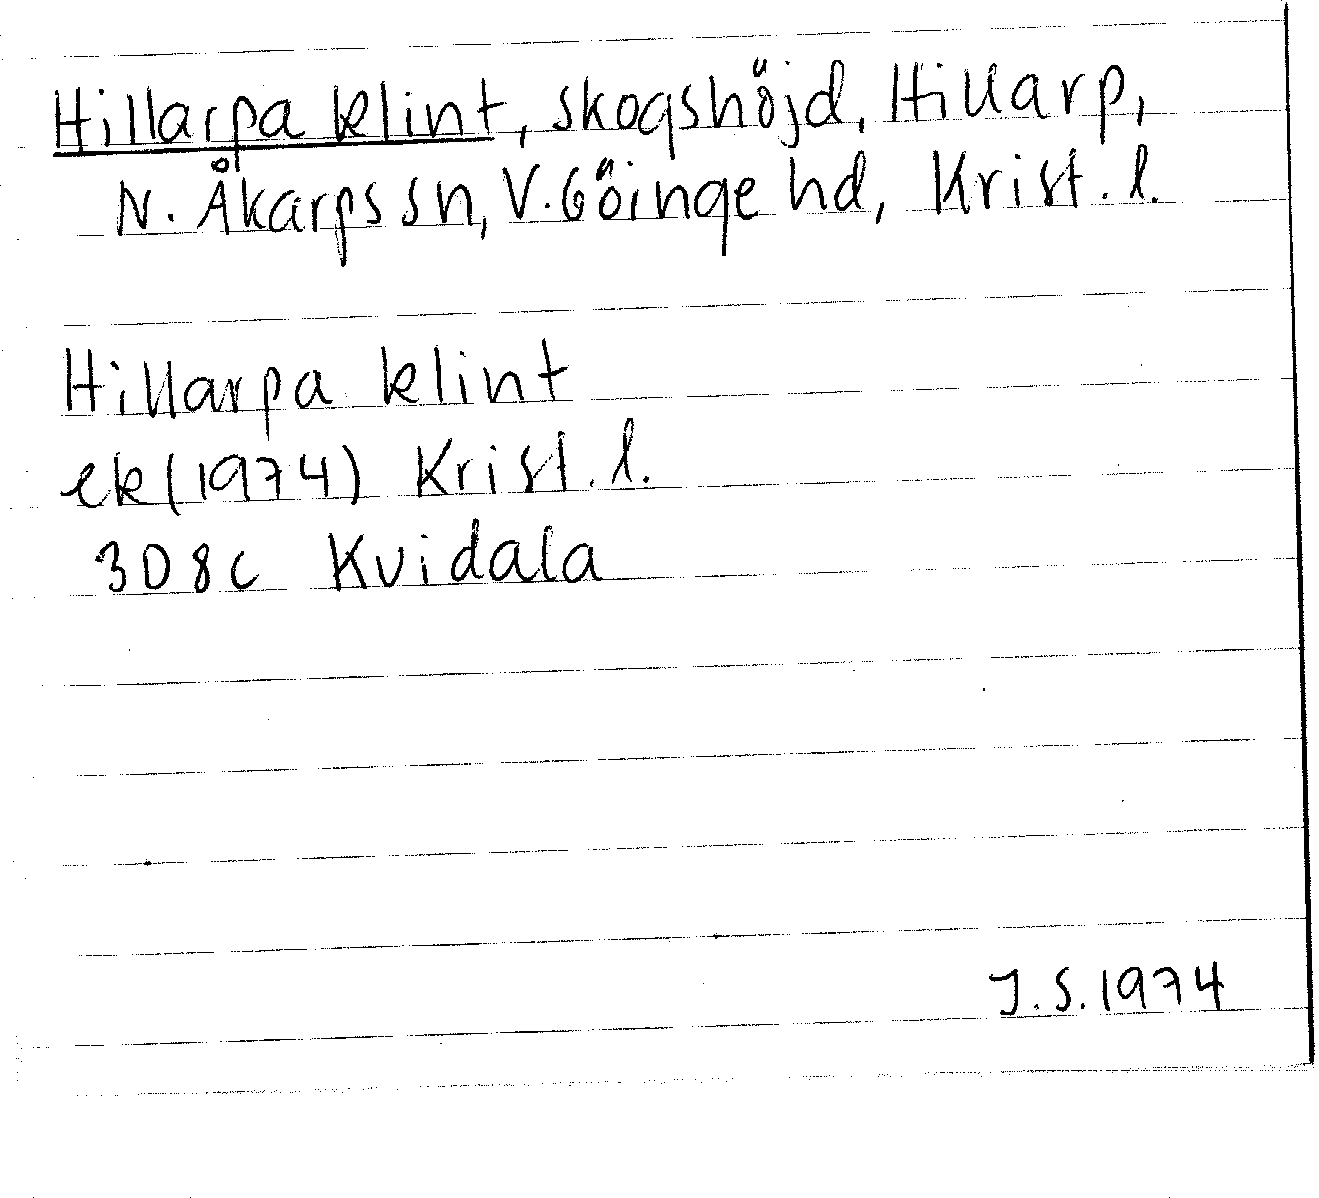 Hillarpa klint, skogshöjd, Hillarp,
N. Åkarps sn, V. Göinge hd, Krist. l.
Hillarpa klint
ek (1974) Krist. l.
3D 8c Kvidala
J.S. 1974